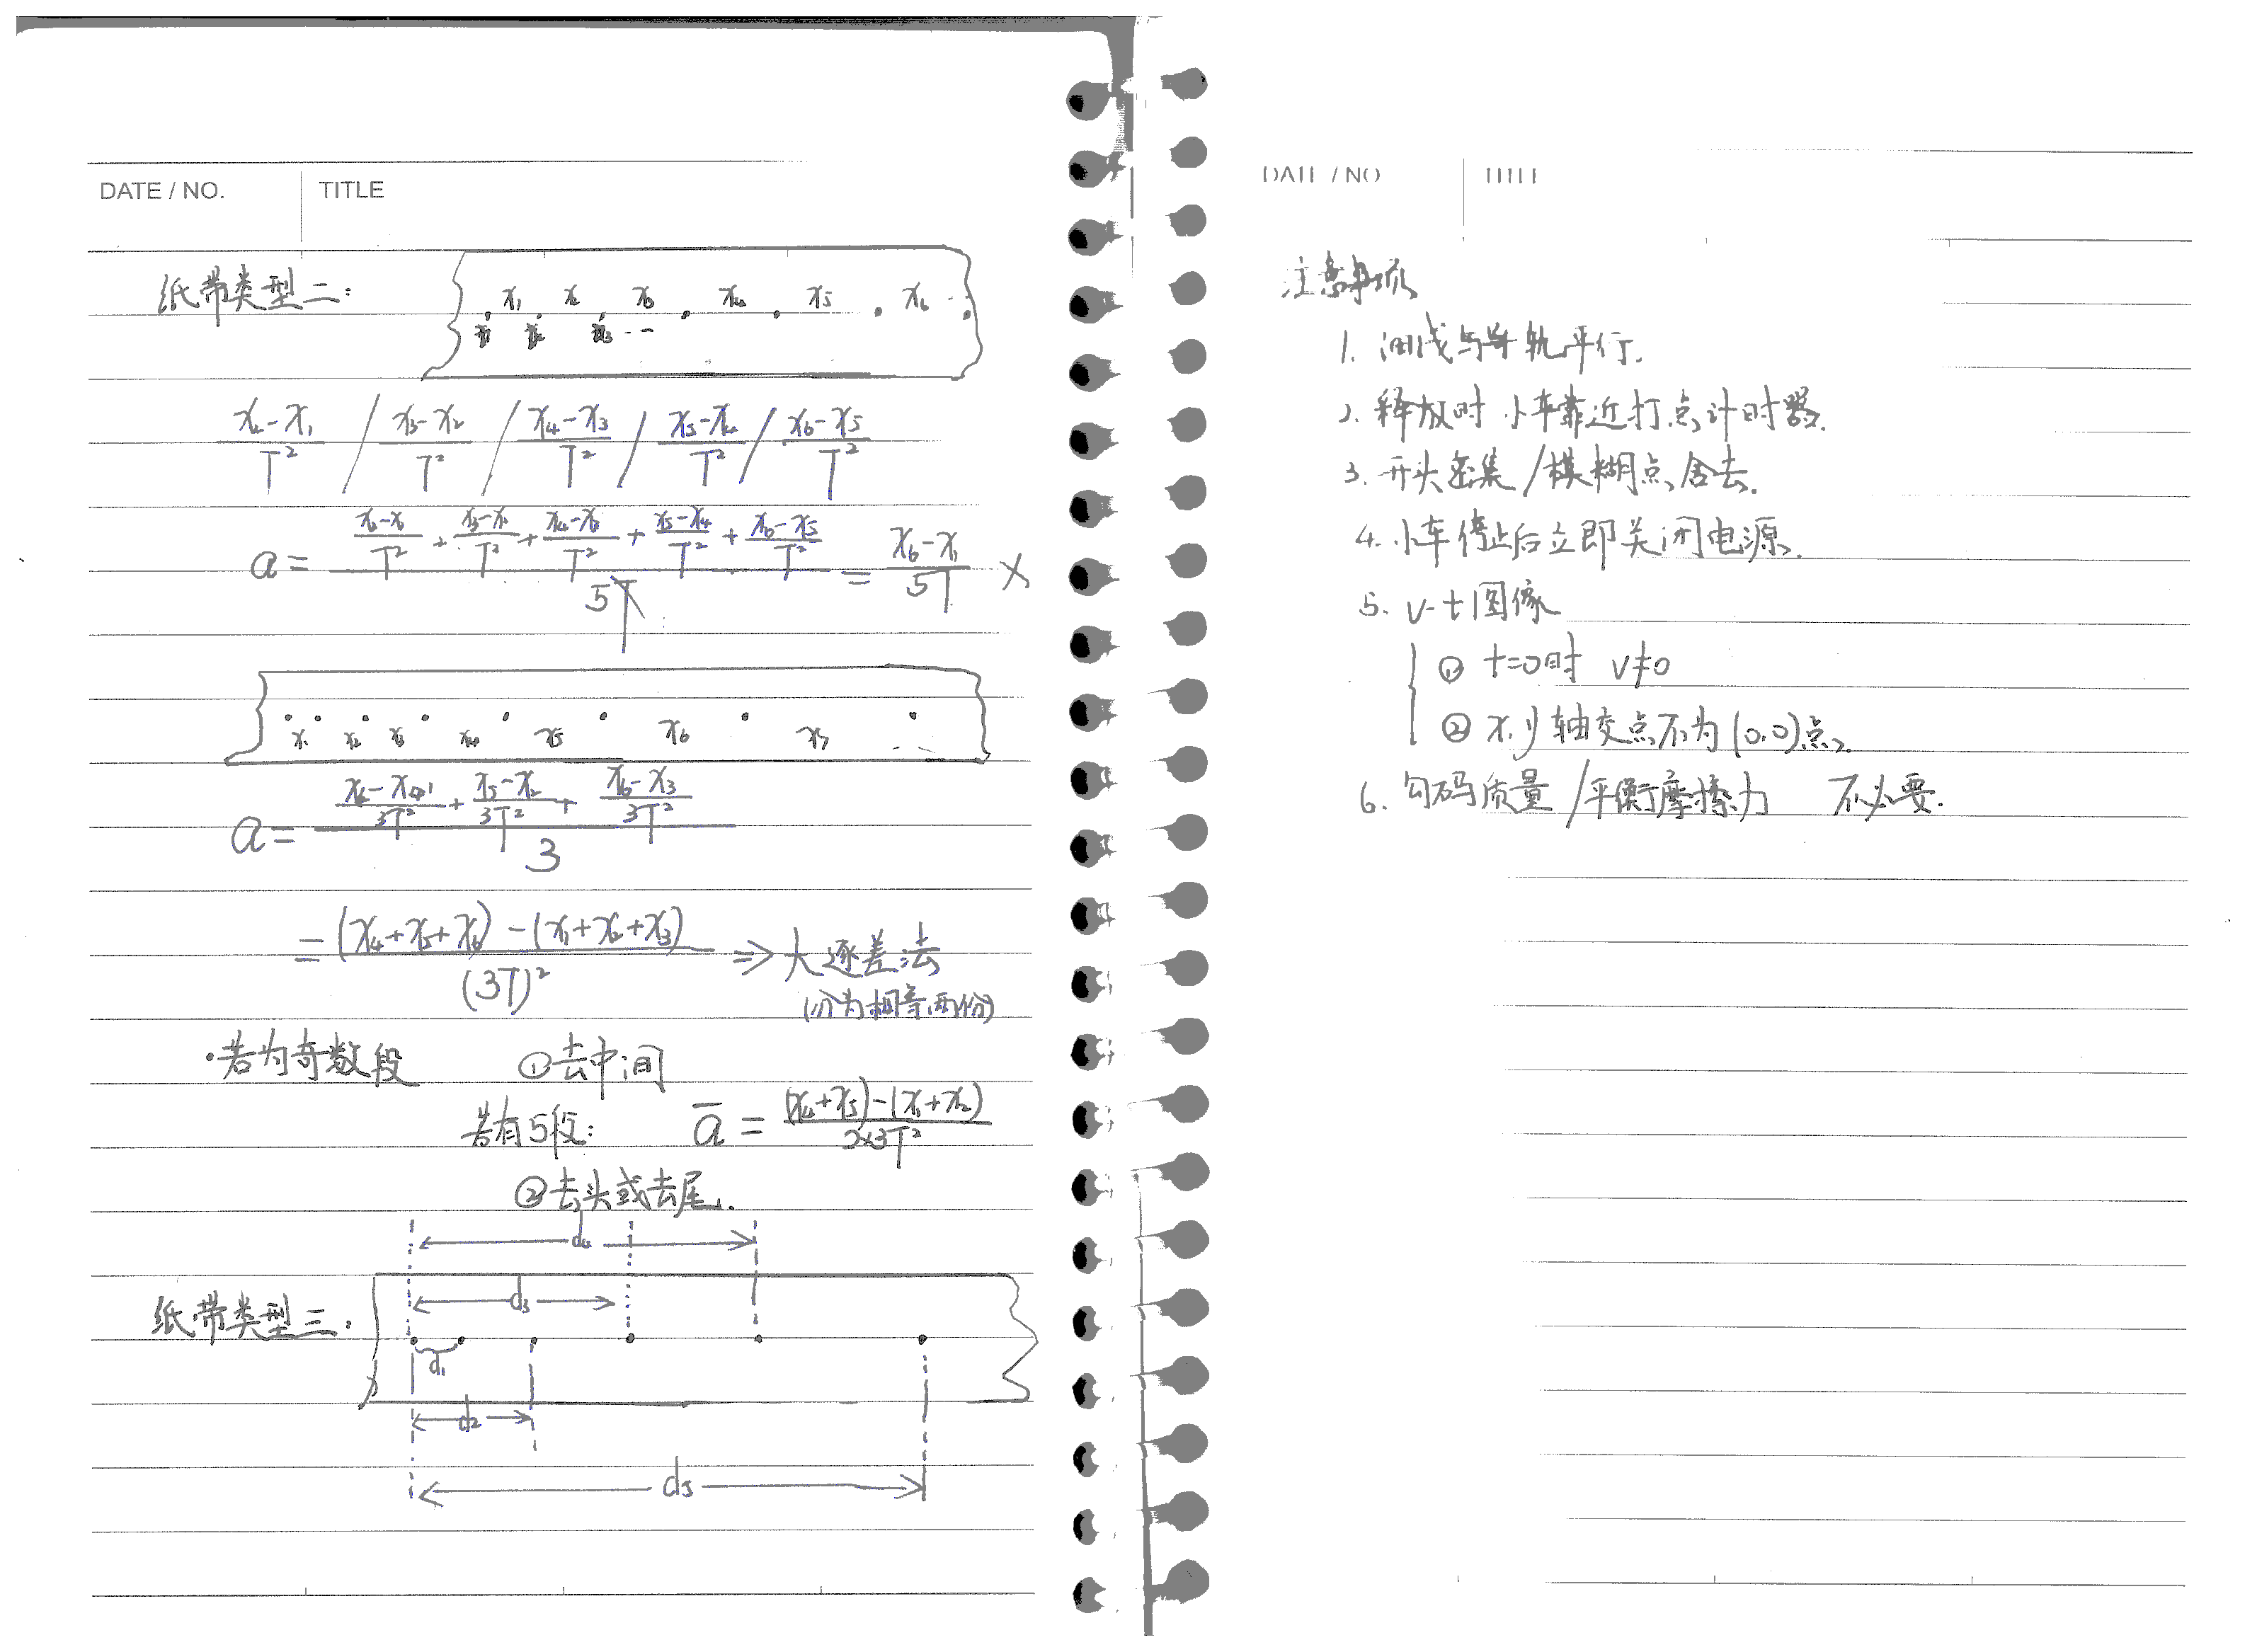 DATE / NO. TITLE
纸带类型二:
x₁ x₂ x₃ x₄ x₅ x₆ --
x₂-x₁/T² / x₃-x₂/T² / x₄-x₃/T² / x₅-x₄/T² / x₆-x₅/T²
a = (x₂-x₁/T² + x₃-x₂/T² + x₄-x₃/T² + x₅-x₄/T² + x₆-x₅/T²)/5 = x₆-x₁/5T ×
x₁ x₂ x₃ x₄ x₅ x₆ x₇
a = (x₄-x₁/3T² + x₅-x₂/3T² + x₆-x₃/3T²)/3
= (x₄+x₅+x₆)-(x₁+x₂+x₃)/(3T)² ⇒ 大逐差法
(分为相等两份)
·若为奇数段 ①去中间
若有5段: a̅ = (x₄+x₅)-(x₁+x₂)/2×3T²
②去头或去尾.
d₄
纸带类型三:
d₃
d₁
d₂
d₅
DATE / NO TITLE
注意事项
1. 细线与导轨平行.
2. 释放时 小车靠近打点计时器.
3. 开头密集/模糊点舍去.
4. 小车停止后立即关闭电源.
5. v-t图像
① t=0时 v≠0
② x.y轴交点不为(0.0)点.
6. 勾码质量/平衡摩擦力 不必要.